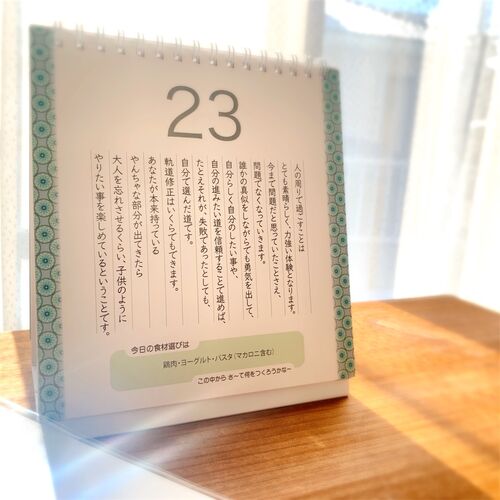 23
人の周りで過ごすことは
とても素晴らしく、力強い体験となります。
今まで問題だと思っていたことさえ、
問題でなくなっていきます。
誰かの真似をしながらでも勇気を出して、
自分らしく自分のしたい事や、
自分の進みたい道を信頼することで進めば、
たとえそれが、失敗であったとしても、
自分で選んだ道です。
軌道修正はいくらでもできます。
あなたが本来持っている
やんちゃな部分が出てきたら
大人を忘れさせるくらい、子供のように
やりたい事を楽しめているということです。
今日の食材選びは
鶏肉・ヨーグルト・パスタ(マカロニ含む)
この中から さ〜て何をつくろうかな〜